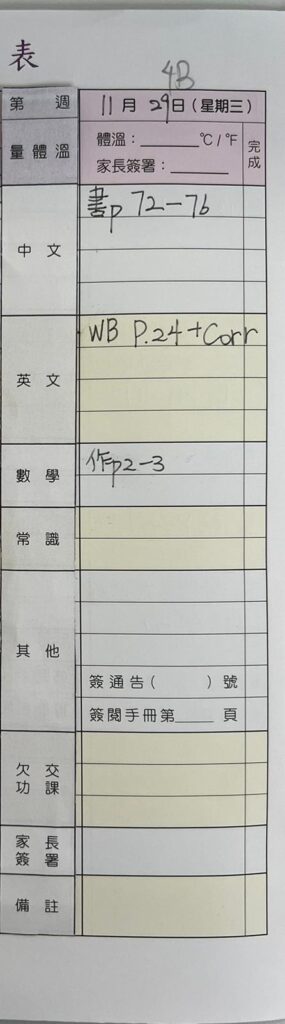 表
4B
第 週 11月29日(星期三)
量體溫 體溫:______°C/°F 完成
家長簽署:______
中文 書p 72-76
英文 WB P.24+Corr
數學 作p2-3
常識
其他
簽通告( )號
簽閱手冊第____頁
欠交
功課
家長
簽署
備註